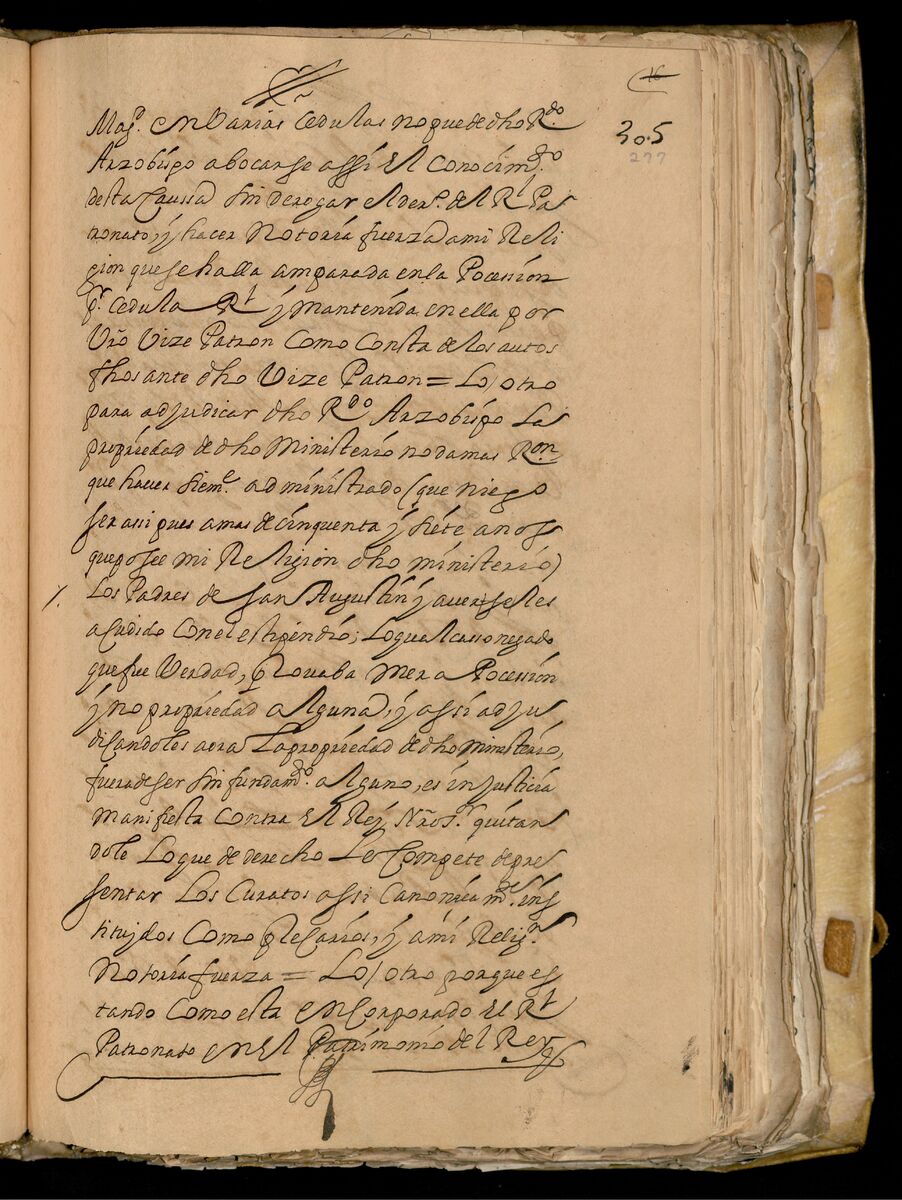 16
305
277
Mag.d en Varias Cedulas no puede dho R.do
Arzobispo abocarse assi El Conocim.to
desta Caussa sin derogar el der.o del R.l Pa
tronato, y hacer Notoria fuerza a mi Reli
gion que se halla amparada en la Pocession
p.r Cedula R.l y mantenida en ella por
Vro Vize Patron Como Consta de los autos
fhos ante dho Vize Patron = Lo otro
para adjudicar dho R.do Arzobispo La
propriedad de dho Ministerio no da mas R.on
que haver siem.e administrado (que niego
ser assi pues a mas de cinquenta y siete anos
que posee mi Religion dho ministerio)
Los Padres de San Augustin y averseles
acudido Con el estipendio; lo qual caso negado
que fue Verdad, provaba mera Pocession
y no propriedad alguna, y assi adju
dicandoles aora La propriedad de dho Ministerio,
fuera de ser sin fundam.to alguno, es injusticia
manifiesta Contra El Rey Nro s.r quitan
dole Lo que de derecho Le Compete de pre
sentar Los Curatos assi Canonica m.te ins
tituydos Como precarios, y a mi Relig.n
Notoria fuerza = Lo otro porque es
tando Como esta encorporado El R.l
Patronato en El Patrimonio del Rey